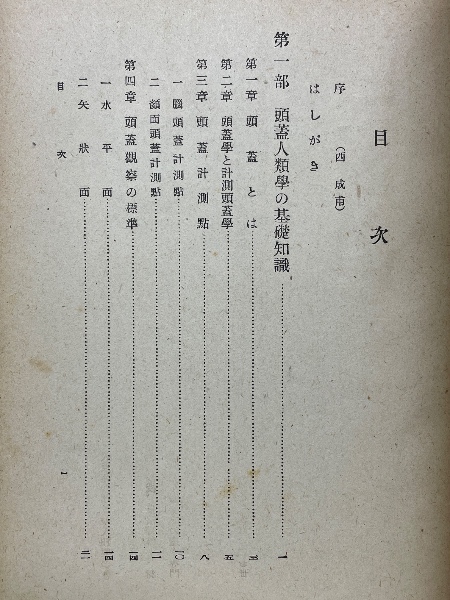 目次
序（西成甫）
はしがき
第一部 頭蓋人類學の基礎知識……一
第一章 頭蓋とは……三
第二章 頭蓋學と計測頭蓋學……五
第三章 頭蓋計測點……八
一 腦頭蓋計測點……一〇
二 顏面頭蓋計測點……一一
第四章 頭蓋觀察の標準……一四
一 水平面……一四
二 矢狀面……二一
目次
1